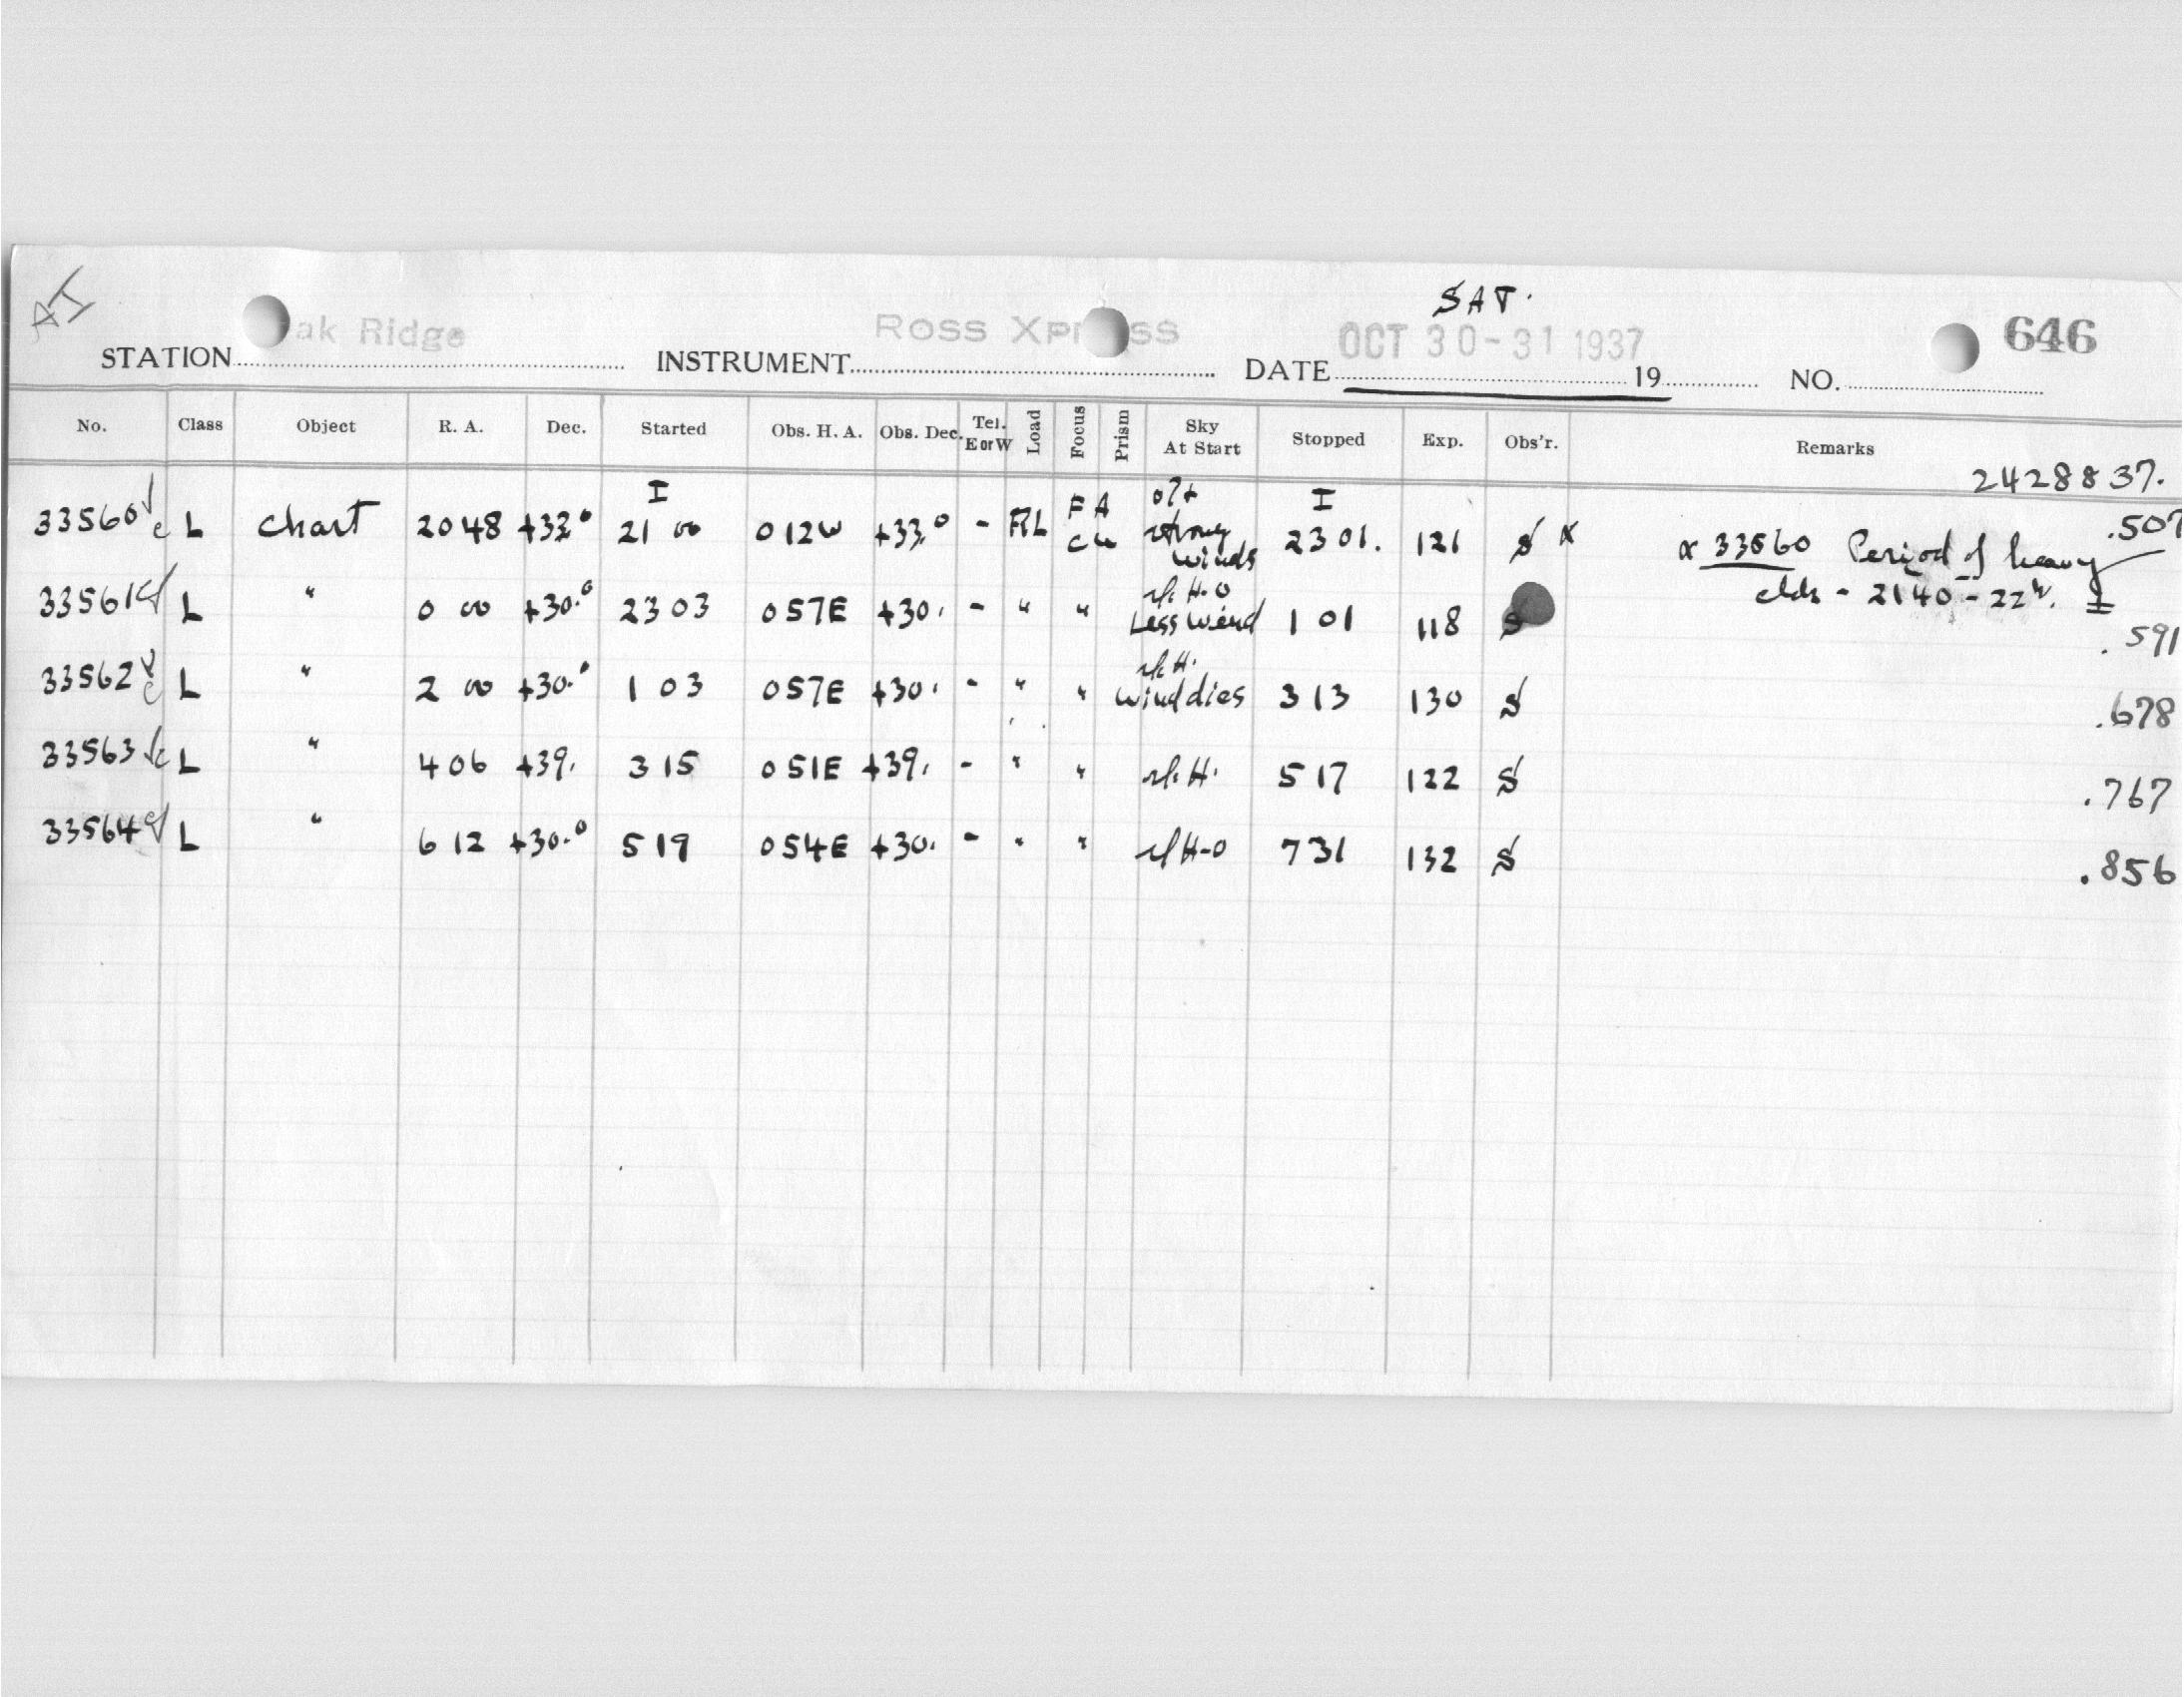 AI
SAT.
STATION ak Ridge INSTRUMENT Ross Xpr ss DATE OCT 30-31 1937 19 NO. 646
No. Class Object R. A. Dec. Started Obs. H. A. Obs. Dec. Tel. E or W Load Focus Prism Sky At Start Stopped Exp. Obs'r. Remarks
2428837.
I I
33560 c L Chart 20 48 +33.° 21 00 0 12W +33.° - RL FA strong winds 23 01. 121 S x x 33560 Period of heavy .507
clds - 2140 - 22 I
33561 L " 0 00 +30.° 23 03 0 57E +30. - " " Less wind 1 01 118 S .591
33562 c L " 2 00 +30.° 1 03 0 57E +30. - " " wind dies 3 13 130 S .678
33563 c L " 4 06 +39. 3 15 0 51E +39. - " " 5 17 122 S .767
33564 L " 6 12 +30.° 5 19 0 54E +30. - " " 7 31 132 S .856